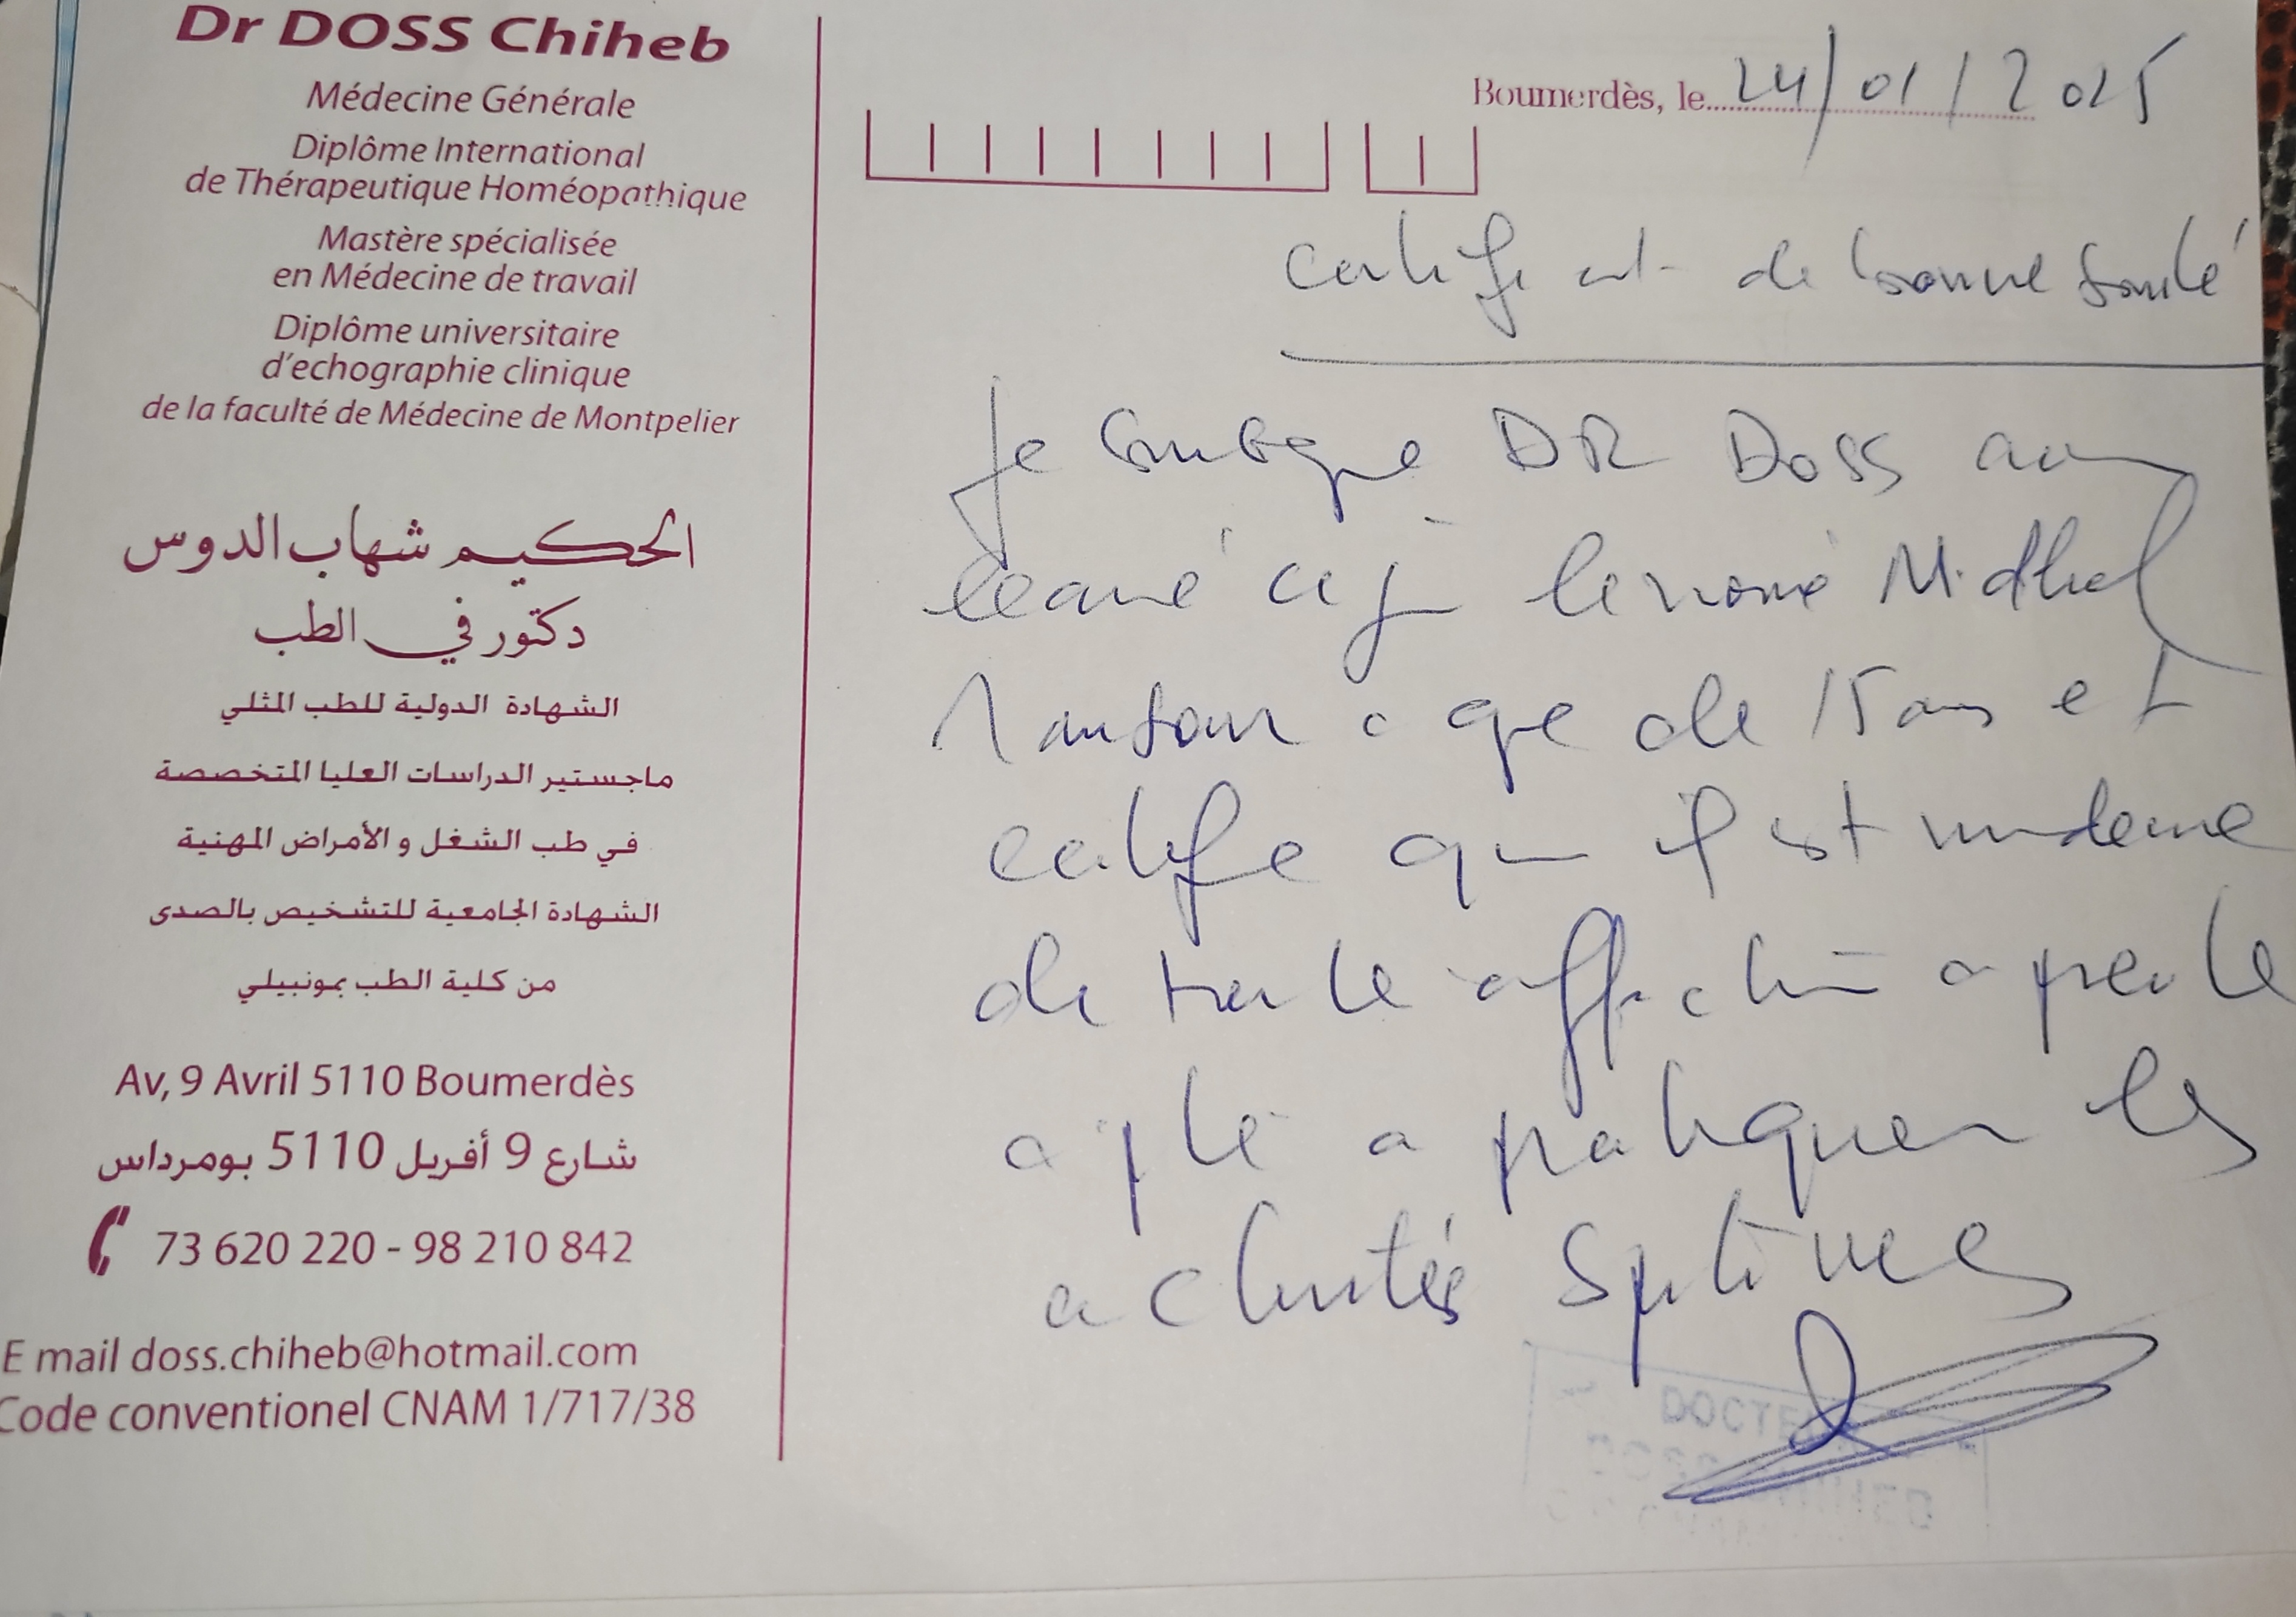 Dr DOSS Chiheb
Médecine Générale
Diplôme International
de Thérapeutique Homéopathique
Mastère spécialisée
en Médecine de travail
Diplôme universitaire
d'echographie clinique
de la faculté de Médecine de Montpelier
الحكيم شهاب الدوس
دكتور في الطب
الشهادة الدولية للطب المثلي
ماجستير الدراسات العليا المتخصصة
في طب الشغل و الأمراض المهنية
الشهادة الجامعية للتشخيص بالصدى
من كلية الطب بمونبيلي
Av, 9 Avril 5110 Boumerdès
شارع 9 أفريل 5110 بومرداس
73 620 220 - 98 210 842
E mail doss.chiheb@hotmail.com
Code conventionel CNAM 1/717/38
Boumerdès, le 24/01/2025
certificat de bonne santé
Je soussigné DR Doss
examiné ce jour le nommé
agé de 15 ans et
certifie qu il est indemne
de toute affection
apte a pratiquer les
activités sportives
DOCTEUR